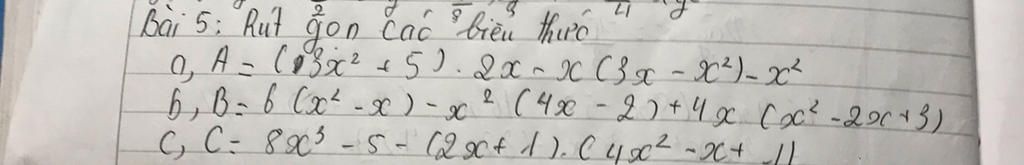 Bài 5: Rút gọn các biểu thức
a, A = (3x² + 5). 2x - x (3x - x²) - x²
b, B = 6 (x² - x) - x² (4x - 2) + 4x (x² - 2x + 3)
C, C = 8x³ - 5 - (2x + 1). (4x² - x + 1)